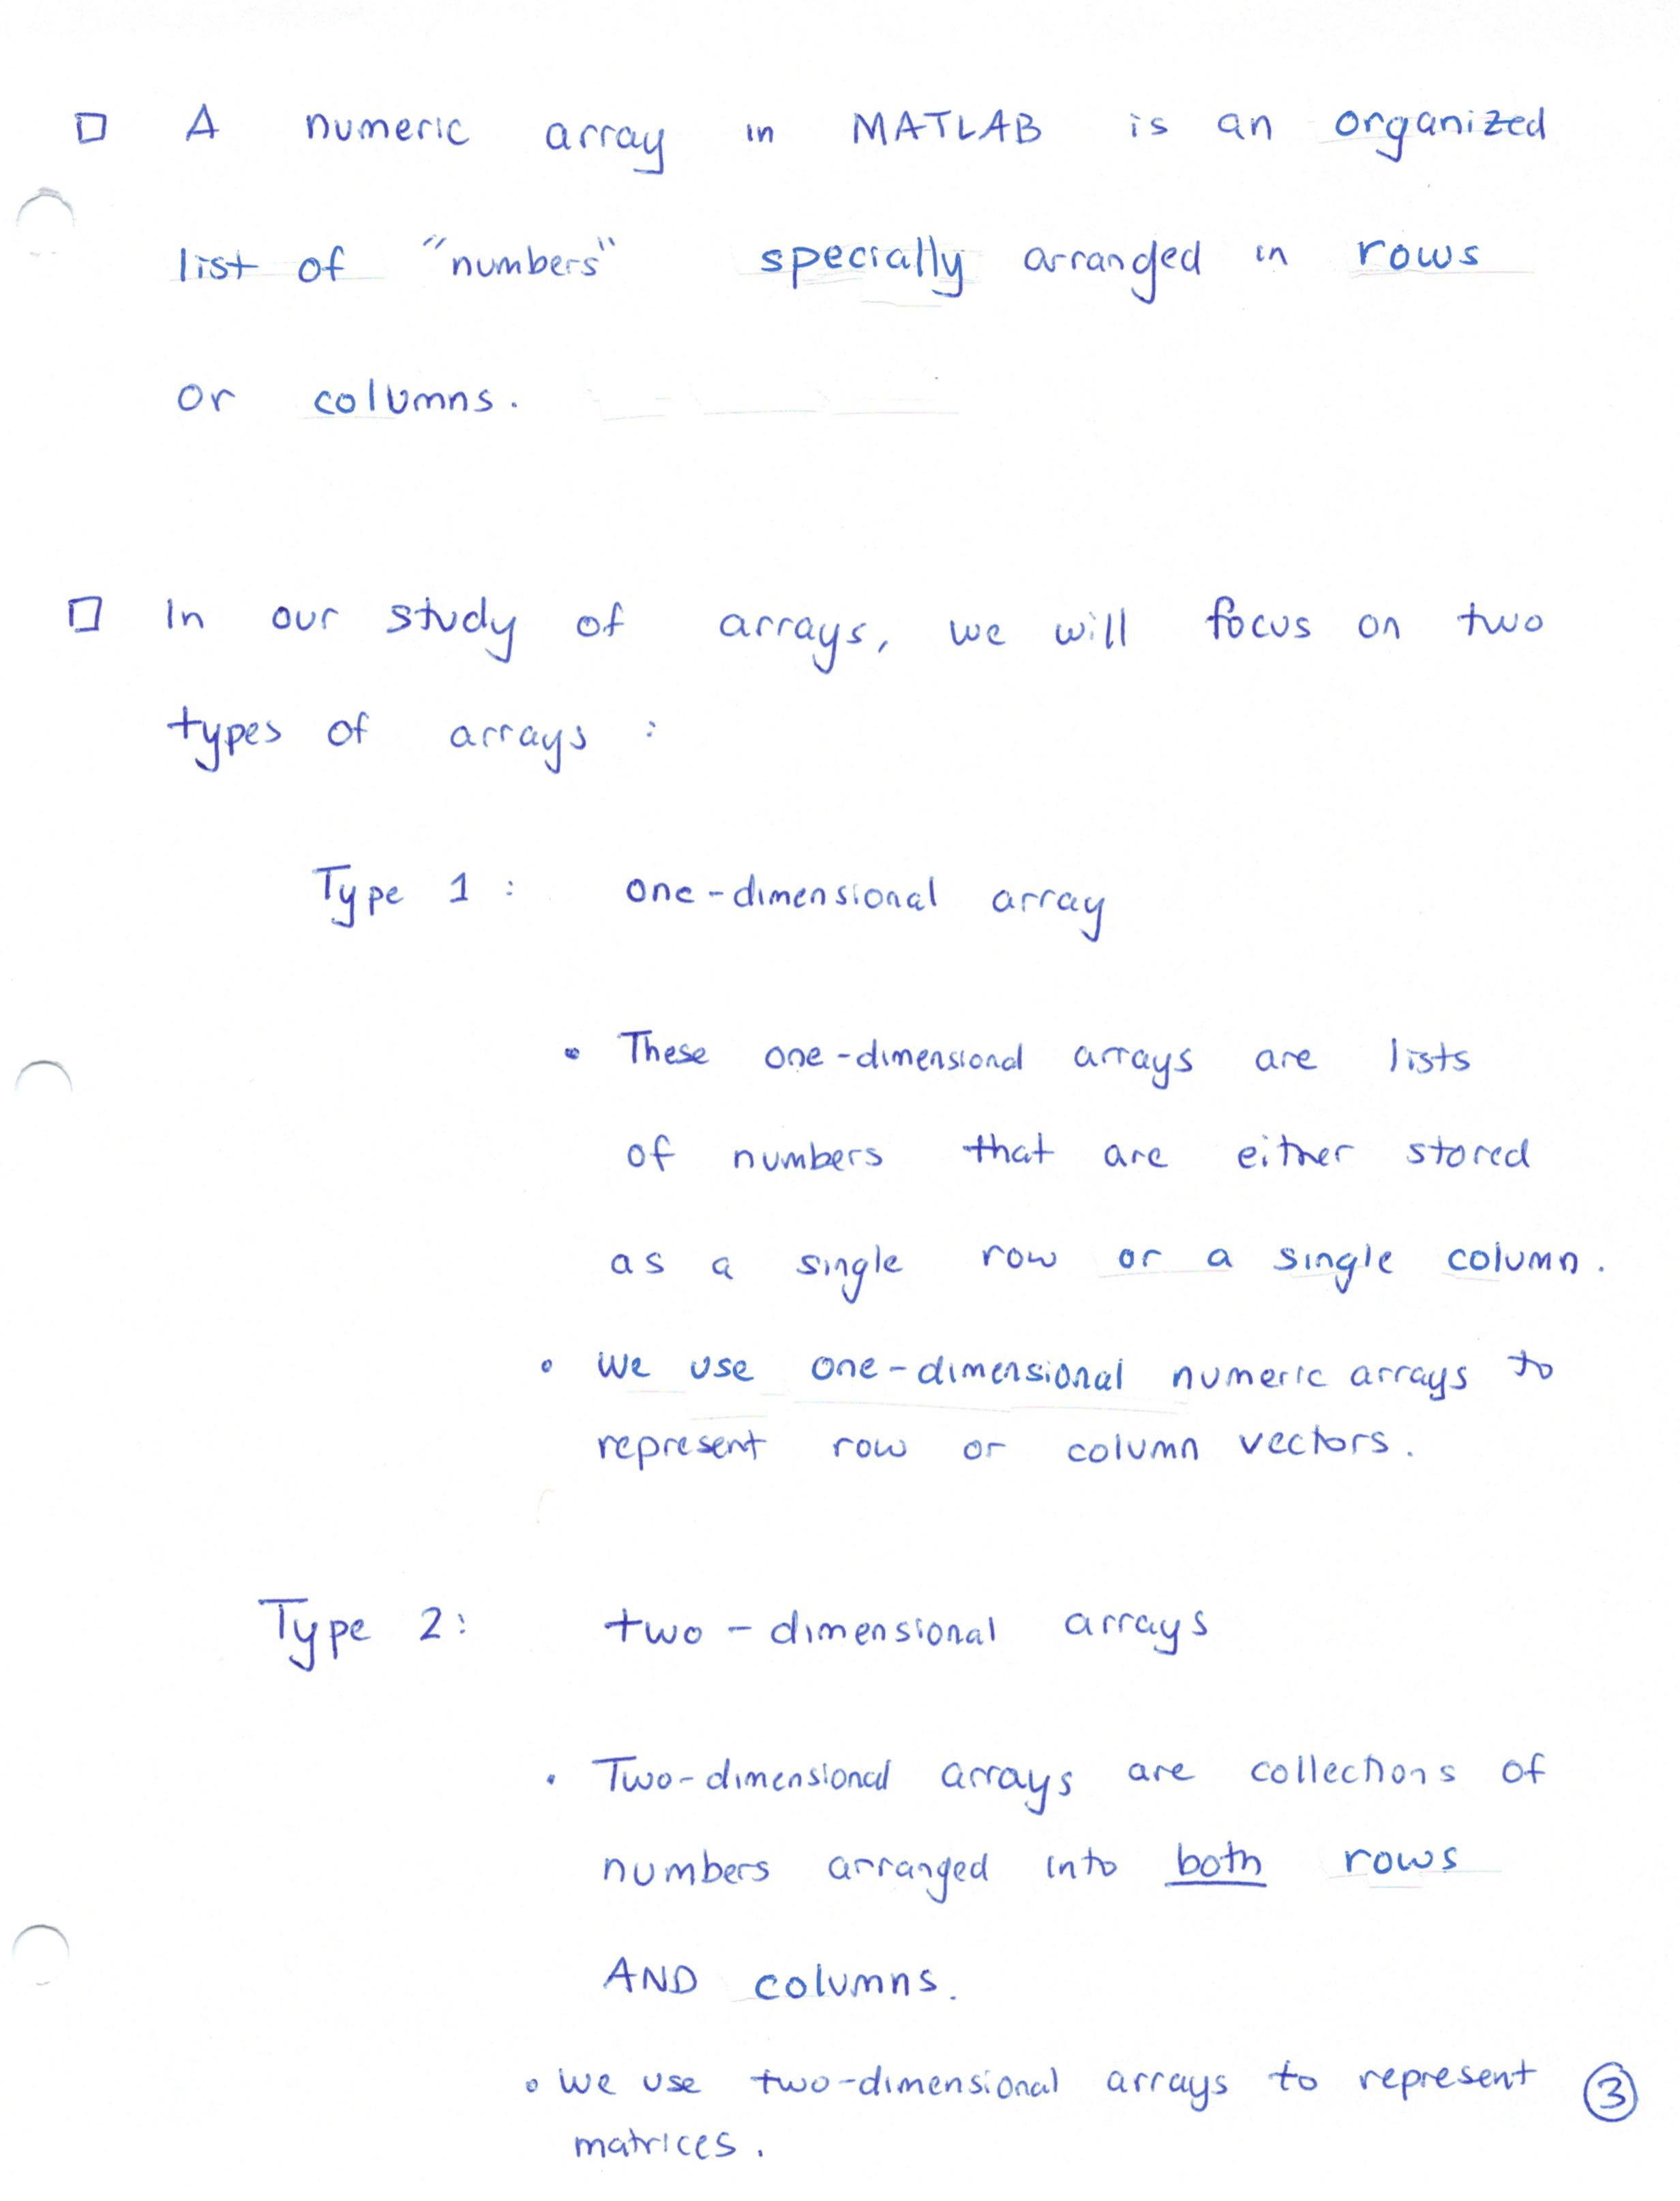 □ A numeric array in MATLAB is an organized
list of "numbers" specially arranged in rows
or columns.
□ In our study of arrays, we will focus on two
types of arrays :
Type 1 : one-dimensional array
• These one-dimensional arrays are lists
of numbers that are either stored
as a single row or a single column.
• We use one-dimensional numeric arrays to
represent row or column vectors.
Type 2: two-dimensional arrays
• Two-dimensional arrays are collections of
numbers arranged into both rows
AND columns.
• We use two-dimensional arrays to represent
matrices.
3